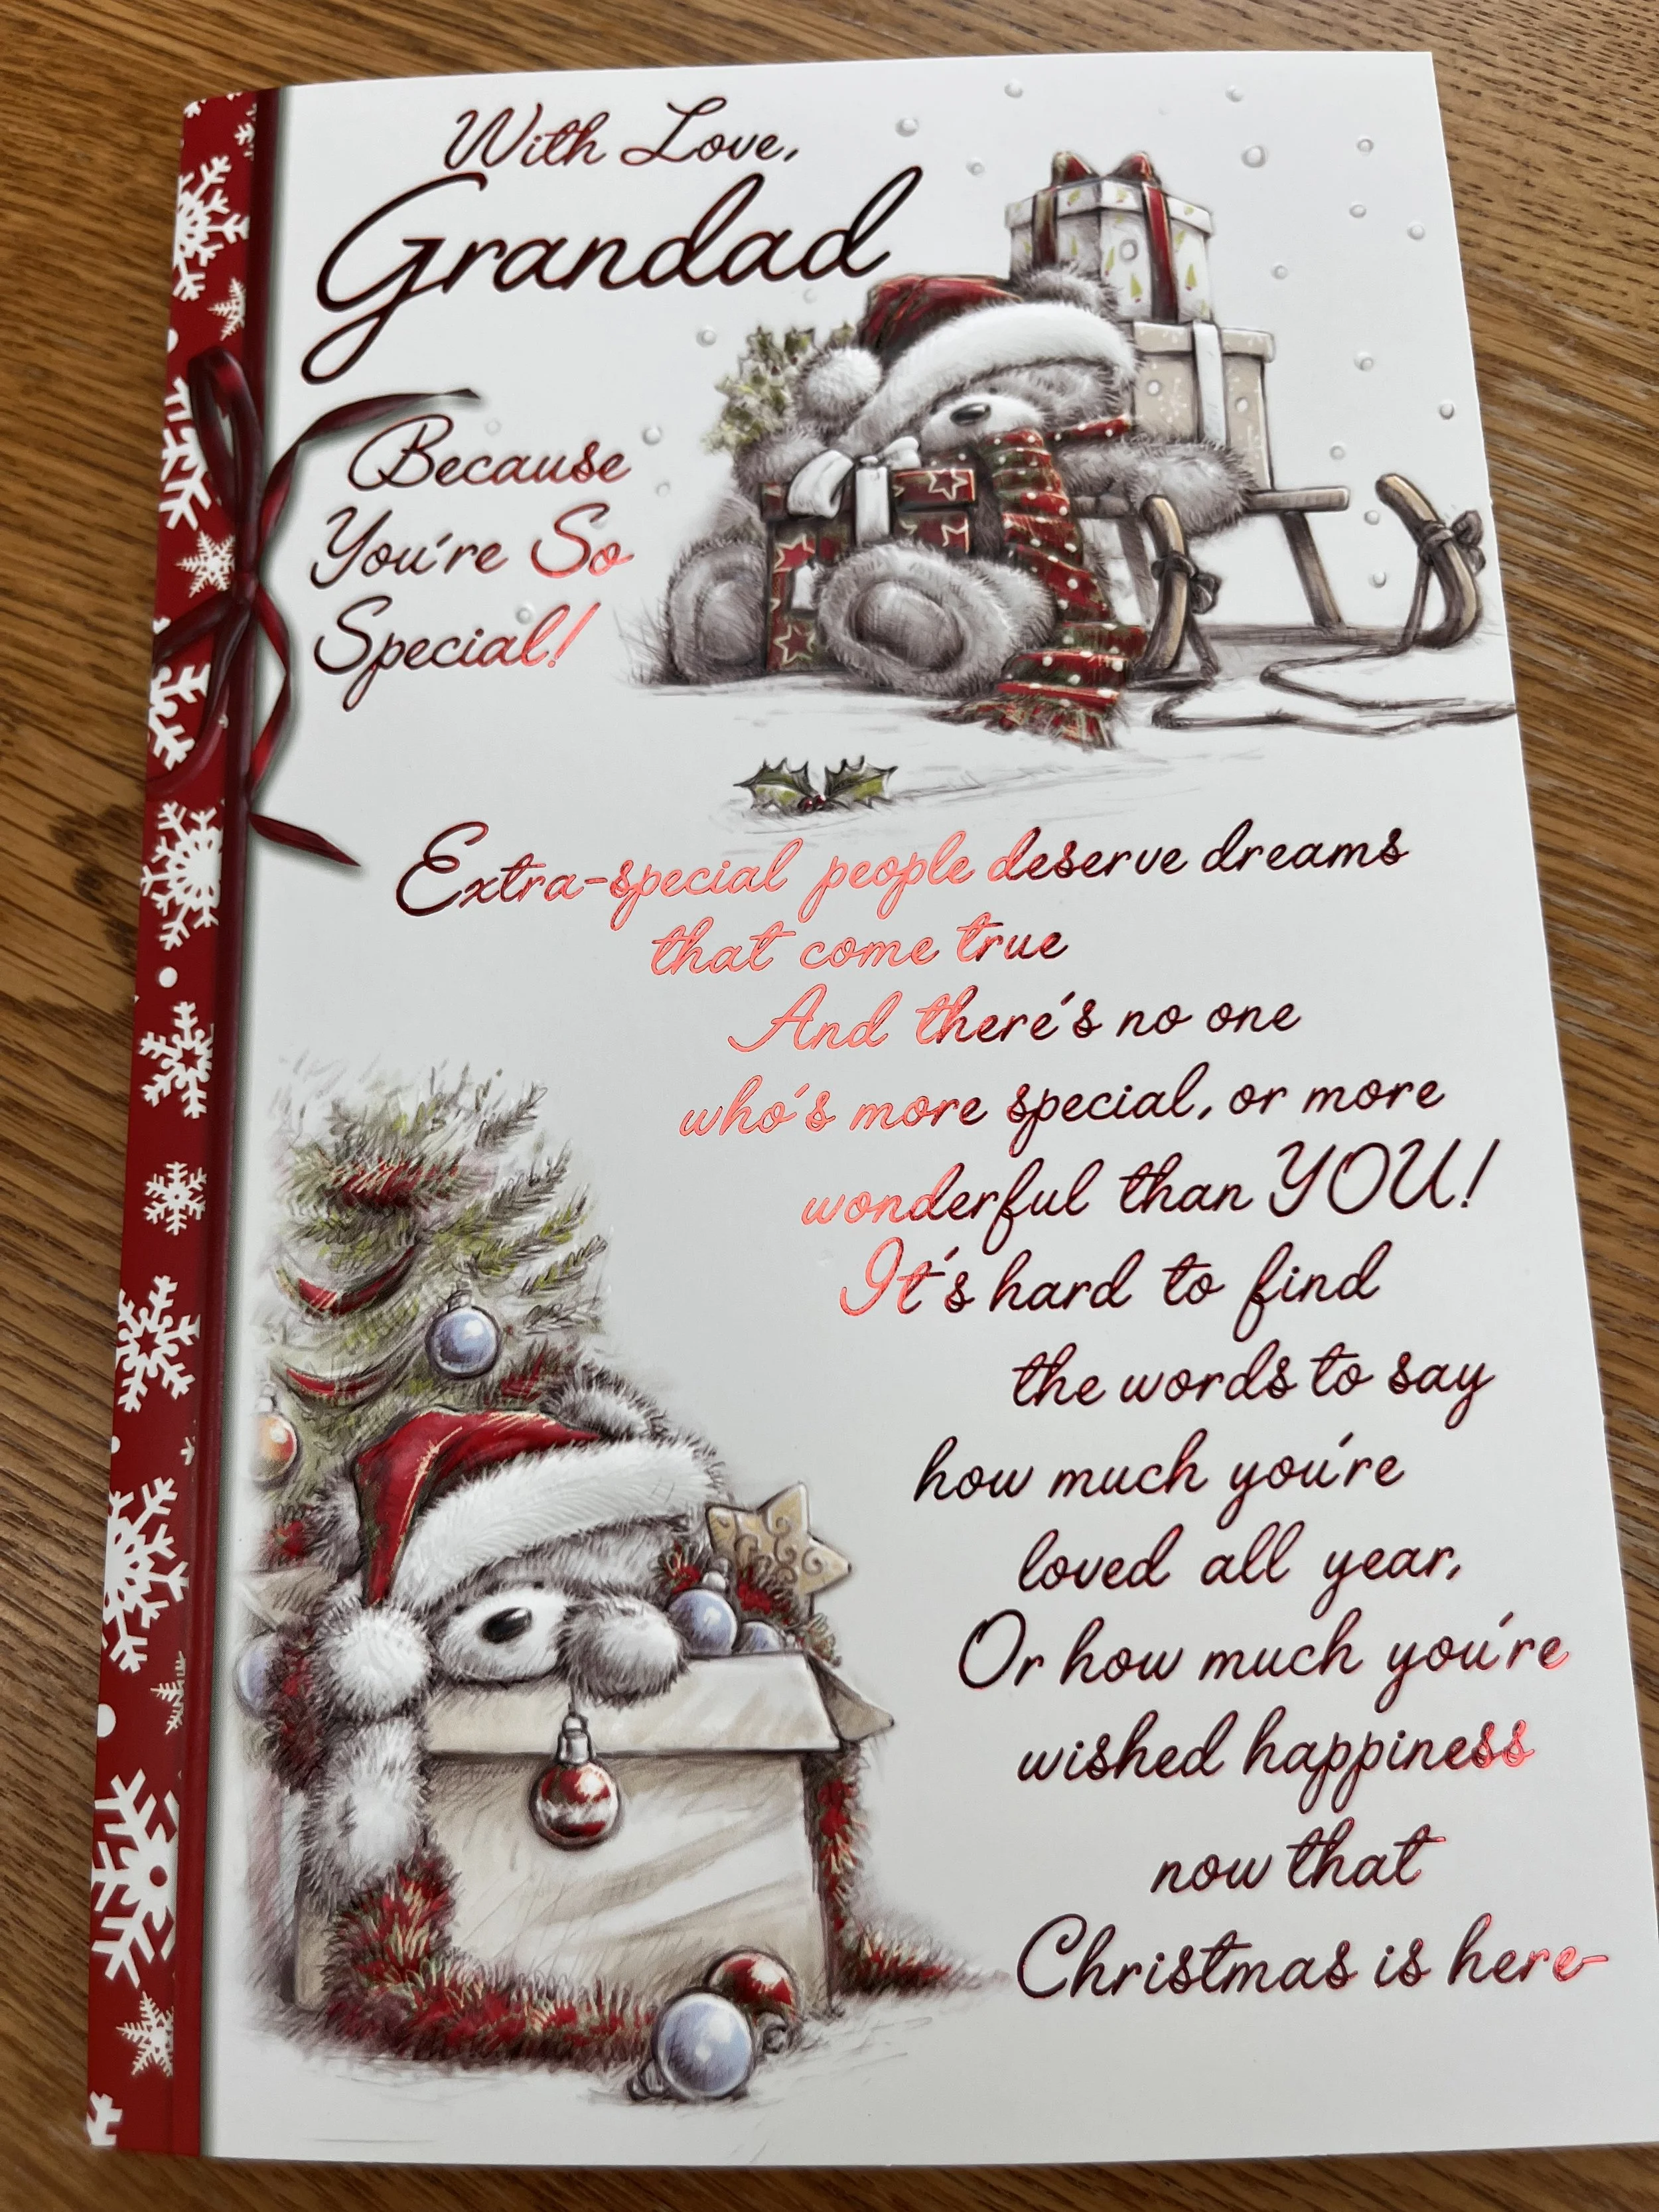 With Love,
Grandad
Because
You're So
Special!
Extra-special people deserve dreams
that come true
And there's no one
who's more special, or more
wonderful than YOU!
It's hard to find
the words to say
how much you're
loved all year,
Or how much you're
wished happiness
now that
Christmas is here-